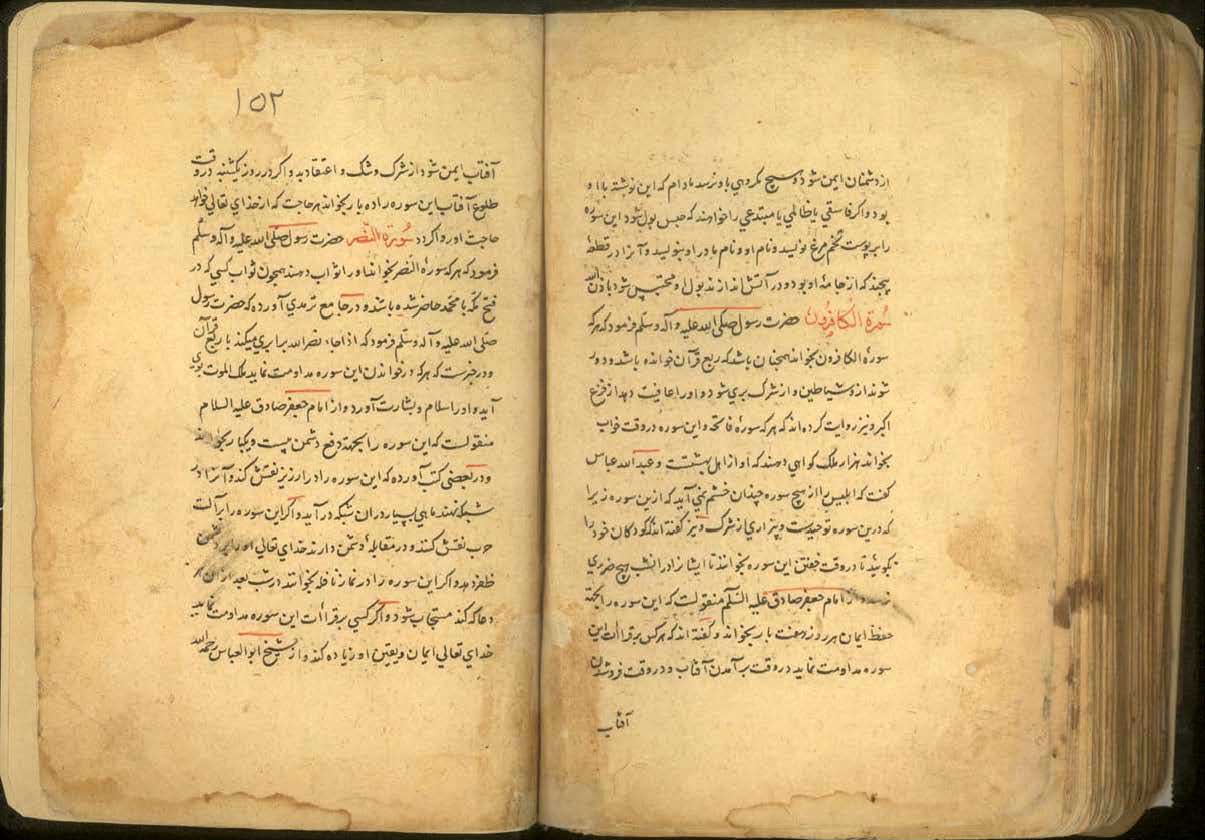 از دشمنان ایمن شود و هیچ مکروهی باو نرسد مادام که این نوشته با او
بود و اکر فاسقی یا ظالمی یا مبتدعی را خواهند که حبس بول شود این سوره
را بر پوست تخم مرغ نویسد و نام او و نام مادر او بنویسد و آنرا در قطعهٔ
پیچند که از جامهٔ او بود و در آتش اندازند بول او محتبس شود باذن الله
سورة الکافرون حضرت رسول صلی الله علیه و آله وسلم فرمود که هر که
سورهٔ الکافرون بخواند همچنان باشد که ربع قرآن خوانده باشد و دور
شوند از و شیاطین و از شرک بری شود و او را عافیت دهد از فزع
اکبر و نیز روایت کرده اند که هر که سورهٔ فاتحه و این سوره در وقت خواب
بخواند هزار ملک کواهی دهند که او از اهل بهشتست و عبد الله عباس
کفت که ابلیس را از هیچ سوره چندان خشم نمی آید که ازین سوره زیرا
که درین سوره توحیدست و بیزاری از شرک و نیز کفته اند که کودکان خود را
بکوئید تا در وقت خفتن این سوره بخوانند تا ایشانرا در آنشب هیچ ضرری
نرسد و از امام جعفر صادق علیه السلام منقولست که این سوره را بجهة
حفظ ایمان هر روز هفت بار بخواند و کفته اند که هر کس بر قراات این
سوره مداومت نماید در وقت بر آمدن آفتاب و در وقت فرو شدن
آفتاب
۱۵۲
آفتاب ایمن شود از شرک و شک و اعتقاد بد و اکر در روز یکشنبه در وقت
طلوع آفتاب این سوره را ده بار بخواند هر حاجت که از خدای تعالی خواهد
حاجت او روا کردد سورة النصر حضرت رسول صلی الله علیه و آله وسلم
فرمود که هر که سورهٔ النصر بخواند او را ثواب دهند همچون ثواب کسی که در
فتح مکه با محمد حاضر شده باشد و در جامع ترمدی آورده که حضرت رسول
صلی الله علیه و آله وسلم فرمود که اذا جاء نصر الله برابری میکند با ربع قرآن
و در خبرست که هر که در خواندن این سوره مداومت نماید ملک الموت بوی
آید و او را سلام و بشارت آورد و از امام جعفر صادق علیه السلام
منقولست که این سوره را بجهة دفع دشمن بیست و یکبار بخواند
و در بعضی کتب آورده که این سوره را در ارزیز نقش کند و آنرا در
شبکه نهند ماهی بسیار در آن شبکه در آید و اکر این سوره را بر آلت
حرب نقش کنند و در مقابلهٔ دشمن دارند خدای تعالی او را بر دشمن
ظفر دهد و اکر این سوره را در نماز نافله بخوانند در شب بعد از آن هر
دعا که کند مستجاب شود و اکر کسی بر قراات این سوره مداومت نماید
خدای تعالی ایمان و یقین او زیاده کند و از شیخ ابو العباس رحمه الله